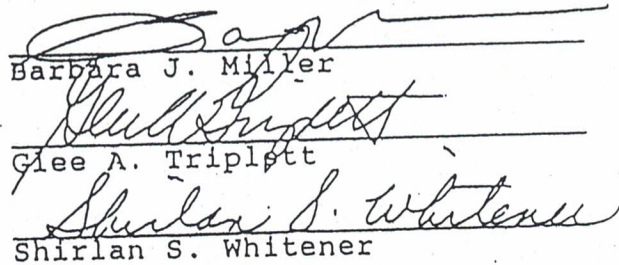 Barbara J. Miller
Glee A. Triplett
Shirlan S. Whitener
Shirlan S. Whitener